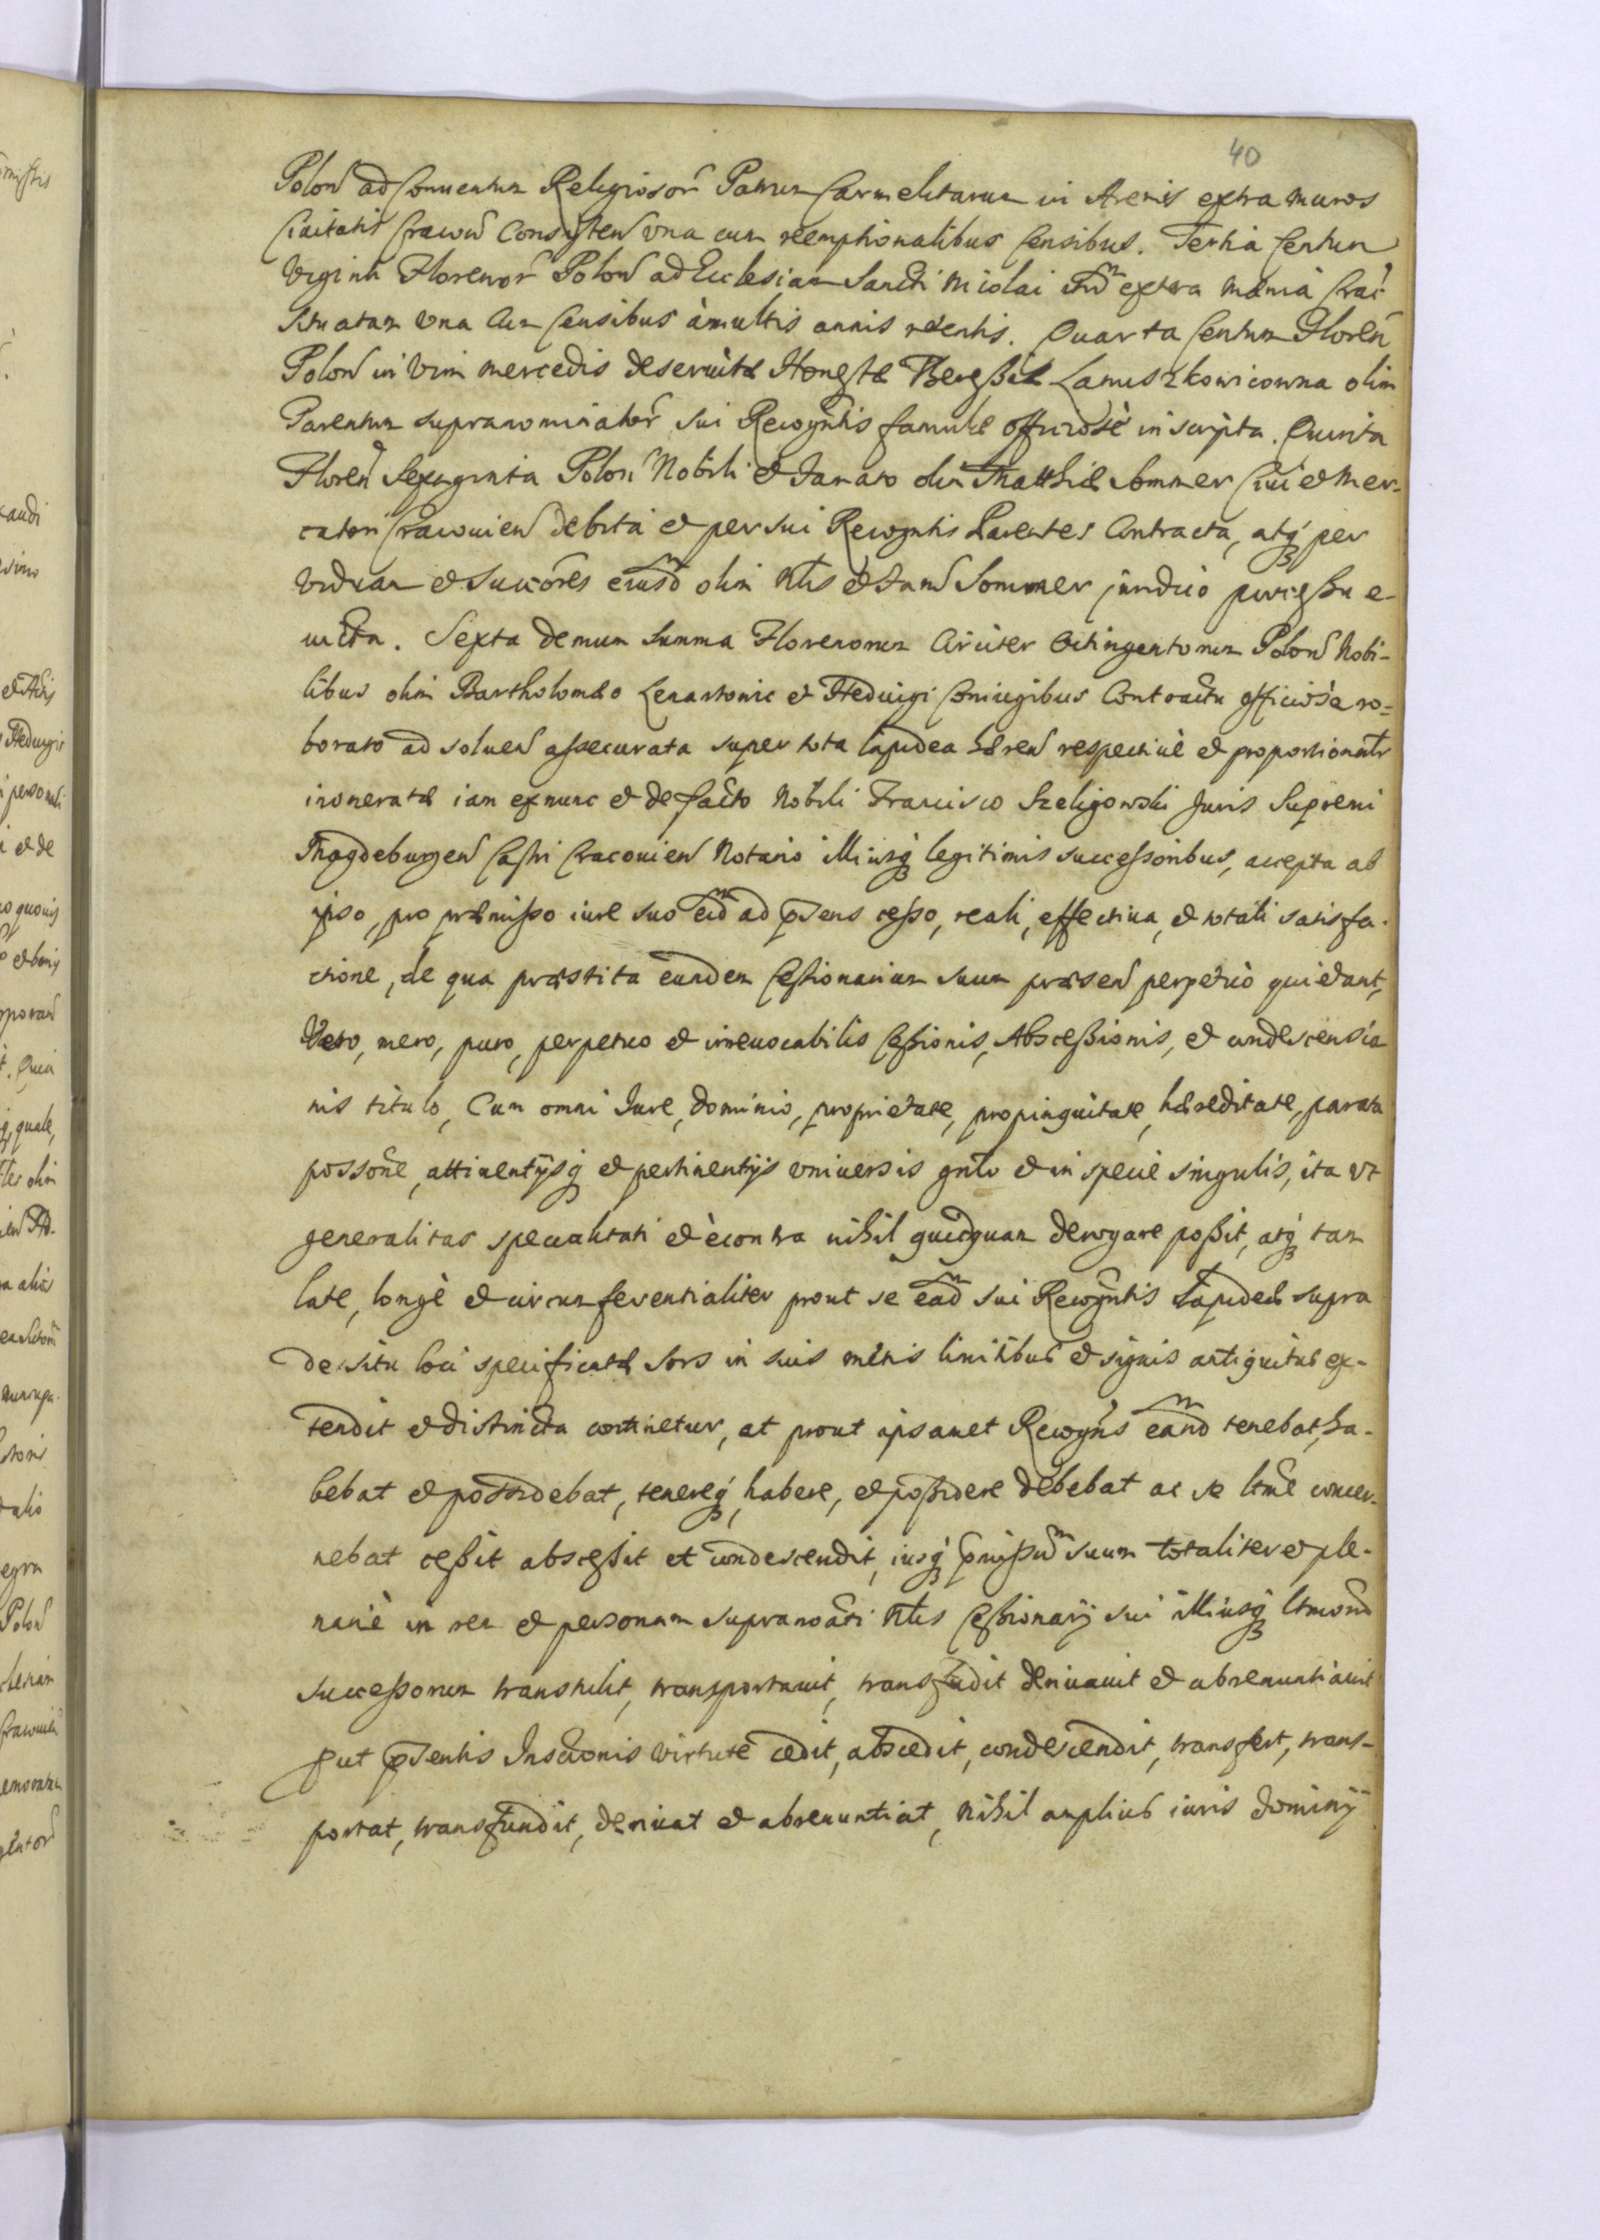 40
Polon ad Conuentum Religiosor Patrum Carmelitarum in Arenis extra muros
Ciuitatis Cracou Consisten vna cum reemptionalibus Censibus. Tertia Centum
Viginti Florenor Polon ad Ecclesiam Sancti Nicolai itid extra mænia Crac
situatam vna cum Censibus à multis annis retentis. Quarta Centum Floren
Polon in vim mercedis deseruitæ Honestæ Lanuszkowicowna olim
Parentum supranominator sui Recogntis famulæ officiosè inscripta. Quinta
Floren Sexaginta Polon Nobili et Famato olim Matthiæ Sommer Ciui et Mer-
catori Cracouien debita et per sui Recogntis Parentes Contracta, atq per
viduam et Succores eiusd olim Nlis et Fam Sommer juridico processu e-
uicta. Sexta demum Summa Florenorum Circiter Octingentorum Polon Nobi-
libus olim Bartholomæo Lenartowic et Heduigi Coniugibus Contractu officiosè ro-
borato ad soluen assecurata super tota lapidea hæren respectiuè et proportionatr
inoneratæ iam exnunc et de facto Nobili Francisco Szeligowski Juris Supremi
Magdeburgen Castri Cracouien Notario illiusq legitimis successoribus, accepta ab
ipso, pro præmisso iure suo eid ad psens cesso, reali, effectiua, et totali satisfa-
ctione, de qua præstita eundem Cessionarium suum præsen perpetuò quietant,
Vero, mero, puro, perpetuo et irreuocabilis Cessionis, Abscessionis, et condescensio
nis titulo, Cum omni Iure, dominio, proprietate, propinquitate, hæreditate, parata
possone, attinentijsq et pertinentijs vniuersis gnlr et in specie singulis, ita vt
generalitas specialitati et è contra nihil quicquam derogare possit, atq tam
late, longè et circumferentialiter prout se ead sui Recogntis Lapideæ supra
de situ loci specificatæ sors in suis metis limitibus et signis antiquitus ex-
tendit et distincta continetur, at prout ipsamet Recogns eand tenebat, ha-
bebat et possidebat, tenereq, habere, et possidere debebat ac se ltme concer-
nebat cessit abscessit et condescendit, iusq pmissu suum totaliter et ple-
nariè in rem et personam supranoati Nlis Cessionarij sui illiusq ltmorum
successorum transtulit, transportauit, transfudit deriuauit et abrenuntiauit
put psentis Inscronis virtute cedit, abscedit, condescendit, transfert, trans-
portat, transfundit, deriuat et abrenuntiat, nihil amplius iuris dominij